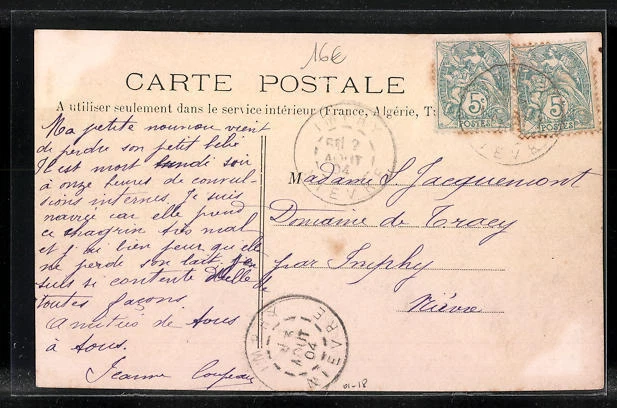 16€
CARTE POSTALE
A utiliser seulement dans le service intérieur (France, Algérie, T
5c
POSTES
5c
POSTES
Ma petite nounou vient
de perdre son petit bébé
Il est mort lundi soir
à onze heures de convul-
sions internes. Je suis
navrée car elle prend
ce chagrin très mal
et j'ai bien peur que elle
ne perde son lait. J'en
suis si contente d'elle de
toutes façons.
Amitiés de tous
à tous.
Jeanne
2
AOUT
04
NIEVRE
Madame S. Jacquemont
Domaine de Tracy
par Imphy
Nièvre
IMPHY
AOUT
04
NIEVRE
01-18